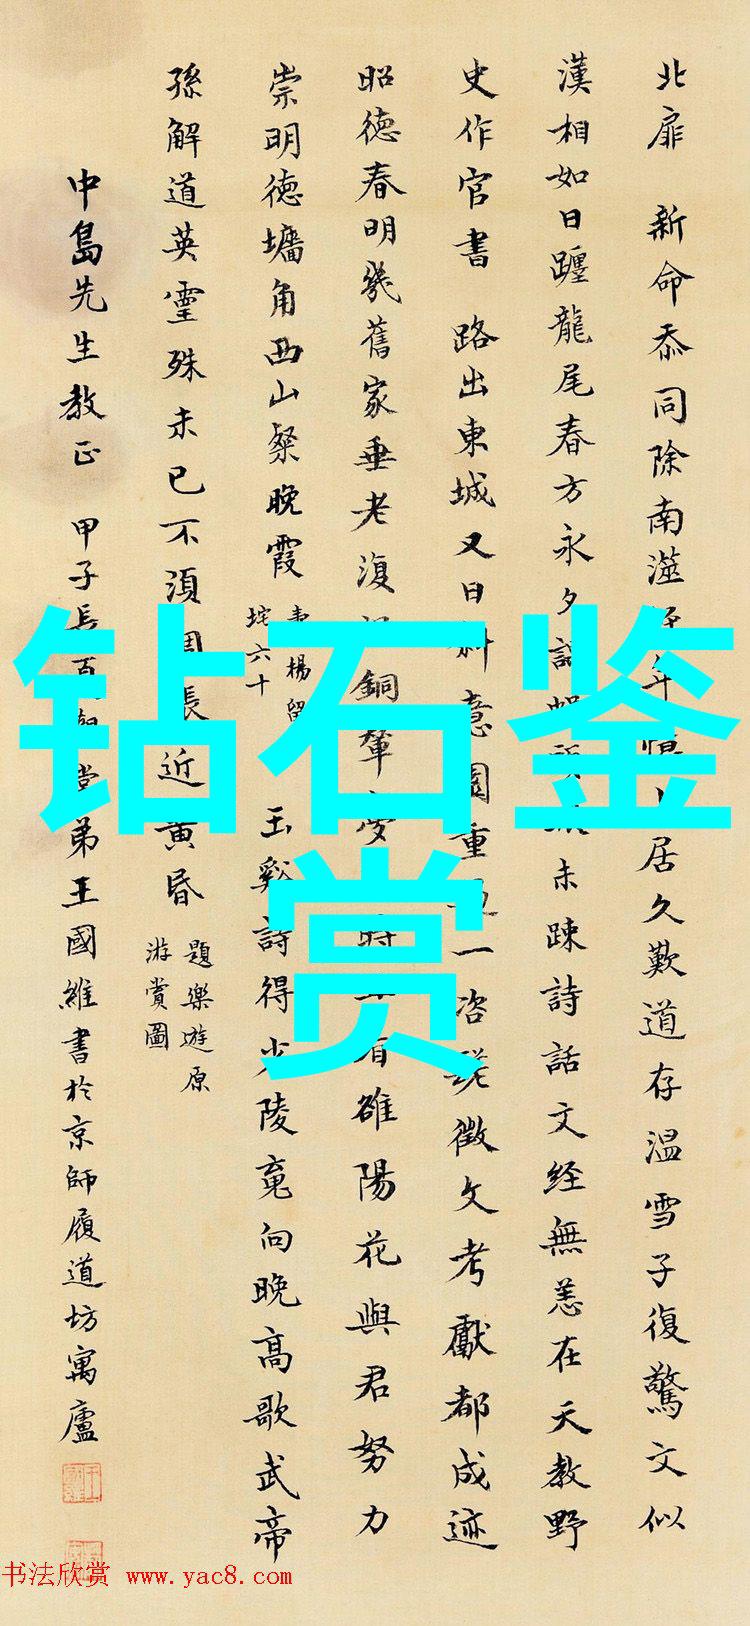 北扉 新命忝同除南澨經年慎卜居久歎道存温雪子復驚文似
漢相如日躔龍尾春方永夕話未疎詩話文经無恙在天教野
史作官書 路出東城又日斜意園重過一咨嗟徵文考獻都成迹
昭德春明幾舊家垂老復銅輦時一有雒陽花與君努力
崇明德墉角西山粲晚霞 韋楊留
垞六十 玉谿詩得少陵竟向晚高歌武帝
孫解道英靈殊未已不須惆悵近黄昏 題樂遊原
游賞圖
中島先生教正 甲子長夏弟王國維書於京師履道坊寓廬
钻石鉴
赏
书法欣赏 www.yac8.com